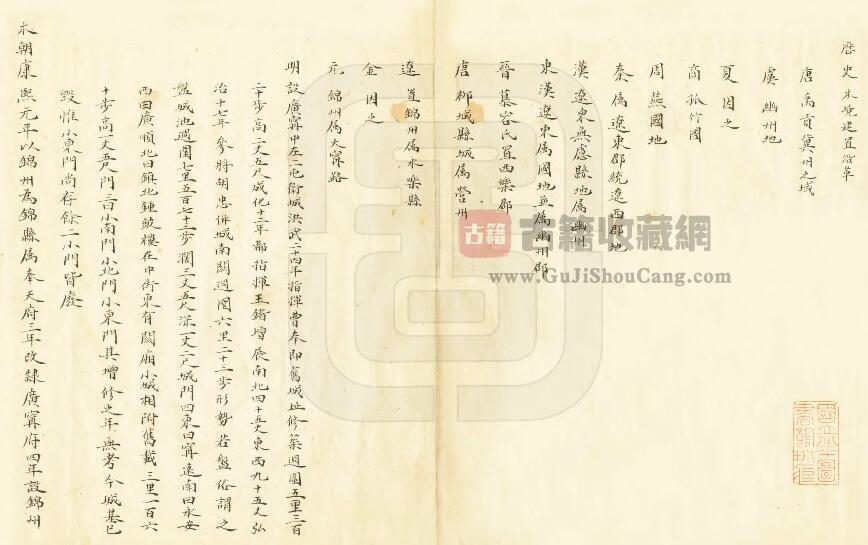 歷史本境建置沿革
唐禹貢冀州之域
虞幽州地
夏因之
商孤竹國
周燕國地
秦為遼東郡統遼西郡地
漢遼東無慮縣地屬幽州
東漢遼東屬國地並屬幽州郡
晉慕容氏置西樂郡
唐柳城縣城屬營州
遼置錦州屬永樂縣
金因之
元錦州屬大寧路
明設廣寧中左二屯衛城洪武二十四年指揮曹奉即舊城址修築週圍五里三百
二十步高二丈五尺成化十二年都指揮王鍇增展南北四十五丈東西九十五丈弘
治十七年參將胡忠併城南關週圍六里二十三步形勢若盤俗謂之
盤城池週圍七里五百七十三步濶三丈五尺深一丈二尺城門四東曰寧遠南曰永安
西曰廣順北曰鎮北鍾皷樓在中街東有關廂小城相附舊載三里一百六
十步高一丈五尺門三曰小南門小北門小東門其增修之年無考今城基已
毀惟小東門尚存餘二小門皆廢
本朝康熙元年以錦州為錦縣屬奉天府三年改隸廣寧府四年設錦州
古籍
古籍收藏網
www.GuJiShouCang.com